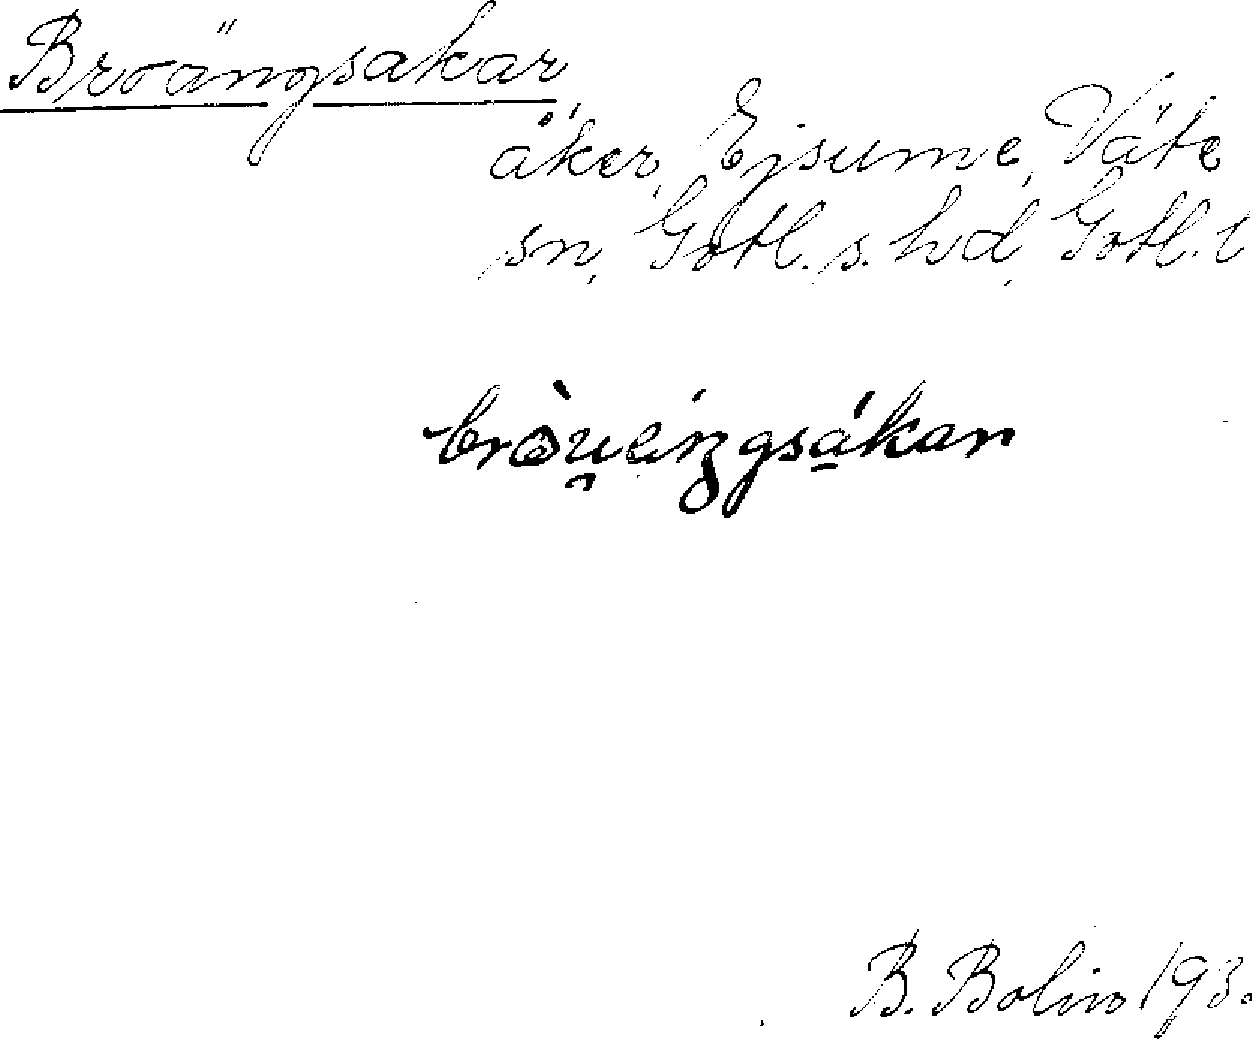 Broängsakar,
åker, Ejsume, Väte
sn, Gotl. s. hd, Gotl. l
bròu̯äŋgsákan
B. Bolin 193.